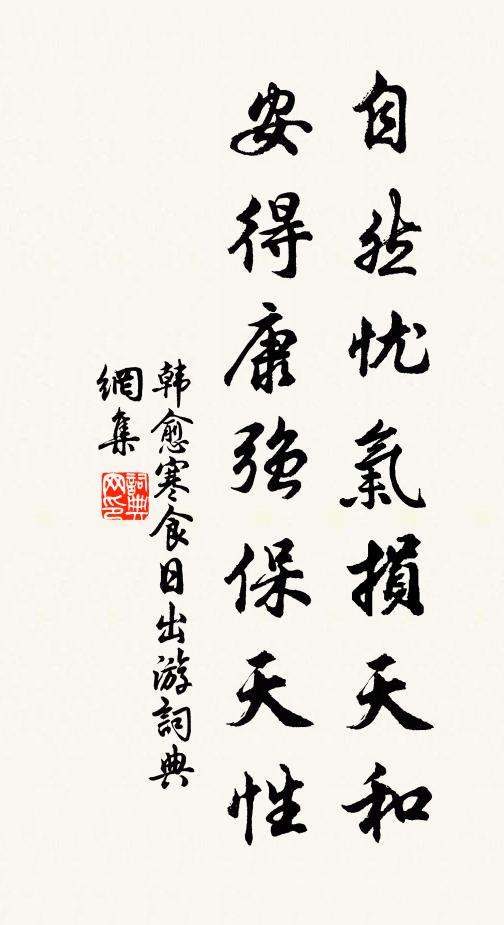 自然忧氣損天和
安得康强保天性
韩愈寒食日出游詞典
網集
詞典
网印